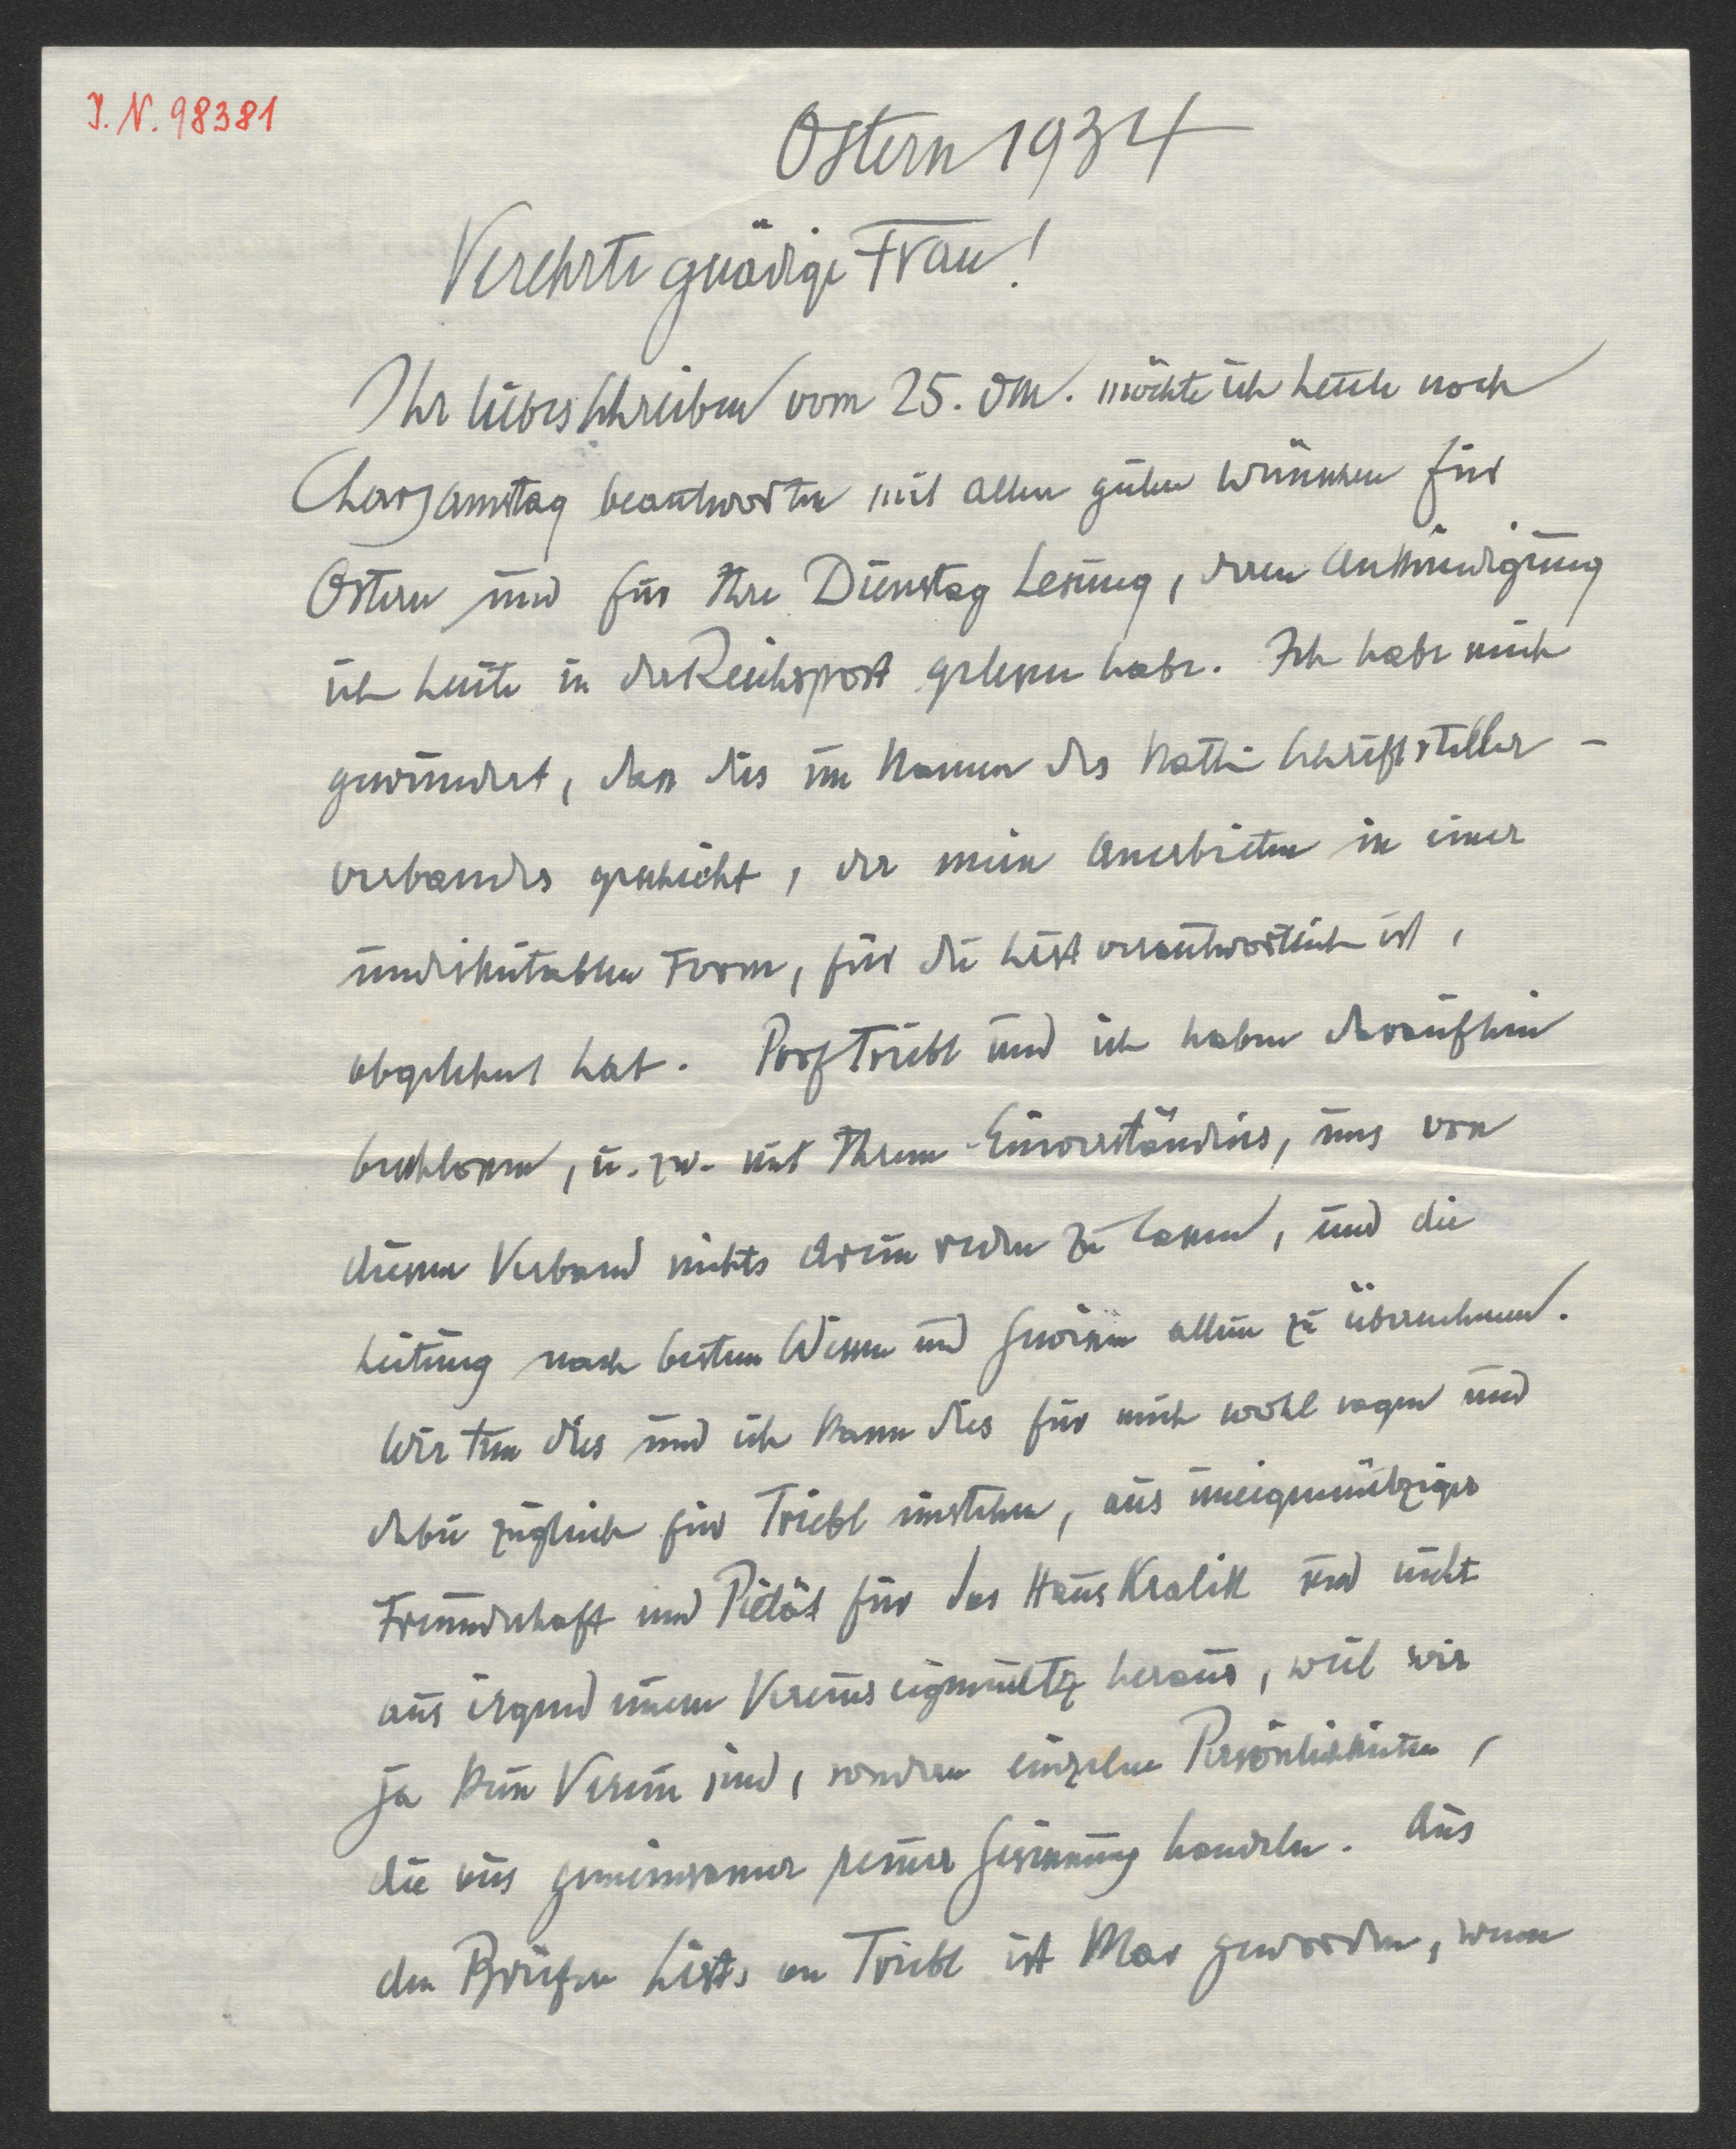 I. N. 98381
Ostern 1934
Verehrte gnädige Frau!
Ihr liebes Schreiben vom 25. dM. möchte ich heute noch
Charsamstag beantworten mit allen guten Wünschen für
Ostern und für Ihre Dienstag Lesung, deren Ankündigung
ich heute in der Reichspost gelesen habe. Ich habe mich
gewundert, dass dies im Namen des Kath. Schriftsteller-
verbandes geschieht, der mein Anerbieten in einer
undiskutablen Form, für die List verantwortlich ist,
abgelehnt hat. Prof Triebl und ich haben daraufhin
beschlossen, u. zw. mit Ihrem Einverständnis, uns von
diesem Verband nichts drein reden zu lassen, und die
Leitung nach bestem Wissen und Gewissen allein zu übernehmen.
Wir tun dies und ich kann dies für mich wohl sagen und
dabei zugleich für Triebl einstehen, aus uneigennütziger
Freundschaft und Pietät für das Haus Kralik und nicht
aus irgend einem Vereinseigennutz heraus, weil wir
ja kein Verein sind, sondern einzelne Persönlichkeiten,
die aus gemeinsamer reiner Gesinnung handeln. Aus
den Briefen Lists an Triebl ist klar geworden, wenn